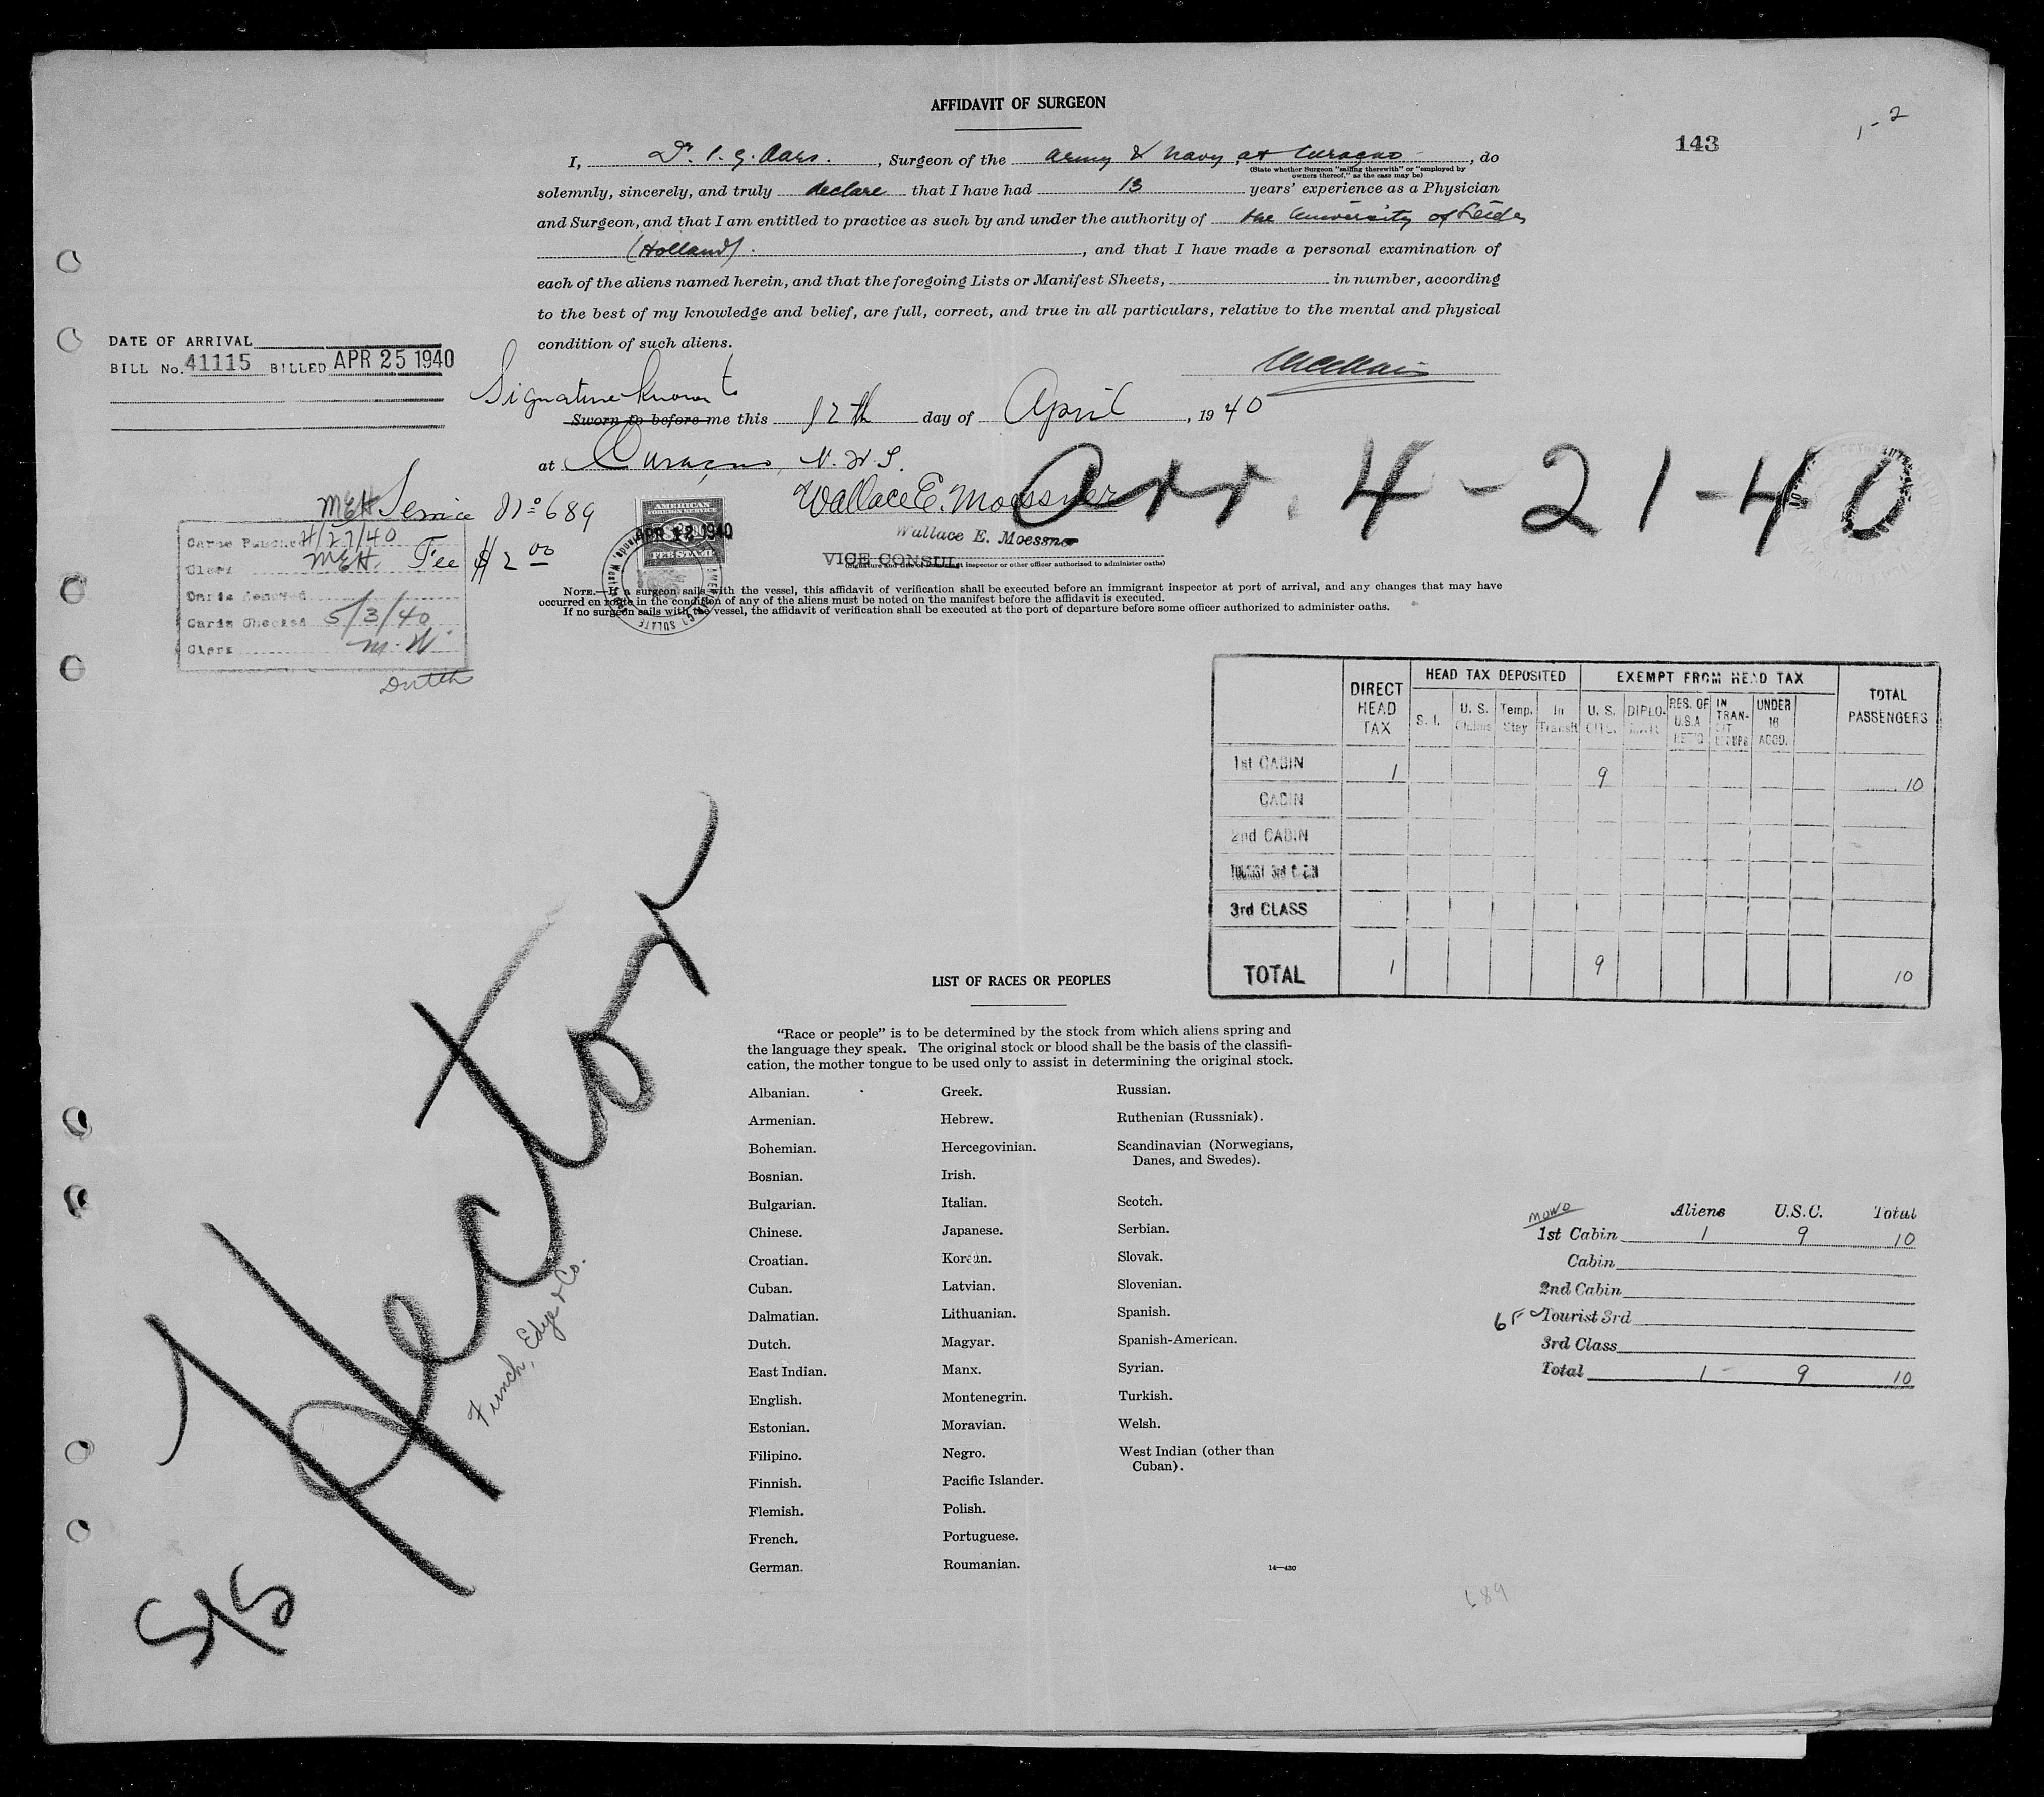 AFFIDAVIT OF SURGEON
143
1-2
I, Dr. , Surgeon of the army & navy, at Curaçao, do
(State whether Surgeon "sailing therewith" or "employed by
owners thereof," as the case may be)
solemnly, sincerely, and truly declare that I have had 13 years' experience as a Physician
and Surgeon, and that I am entitled to practice as such by and under the authority of the University of
(Holland). , and that I have made a personal examination of
each of the aliens named herein, and that the foregoing Lists or Manifest Sheets, in number, according
to the best of my knowledge and belief, are full, correct, and true in all particulars, relative to the mental and physical
condition of such aliens.
DATE OF ARRIVAL
BILL No. 41115 BILLED APR 25 1940
Signature known to
Sworn to before me this 12th day of April, 1940
at Curaçao, N.W.I.
Arr. 4-21-40
Wallace E. Moessner
Wallace E. Moessner
VICE CONSUL
inspector or other officer authorized to administer oaths)
MEH Service No 689
Fee $2 00
AMERICAN
FOREIGN SERVICE
APR 12 1940
FEE STAMP
Cards Punched 4/27/40
Clerk MEH
Cards
Cards Checked 5/3/40
Clerk M.W.
Dutch
NOTE.—If a surgeon sails with the vessel, this affidavit of verification shall be executed before an immigrant inspector at port of arrival, and any changes that may have
occurred en route in the condition of any of the aliens must be noted on the manifest before the affidavit is executed.
If no surgeon sails with the vessel, the affidavit of verification shall be executed at the port of departure before some officer authorized to administer oaths.
DIRECT HEAD TAX
HEAD TAX DEPOSITED
EXEMPT FROM HEAD TAX
TOTAL PASSENGERS
S. I. U. S. Claims Temp. Stay In Transit U. S. CIT. DIPLO- RES. OF U.S.A IN TRAN- UNDER 16 ACCD.
1st CABIN 1 9 10
CABIN
2nd CABIN
TOURIST 3rd CABIN
3rd CLASS
TOTAL 1 9 10
LIST OF RACES OR PEOPLES
"Race or people" is to be determined by the stock from which aliens spring and
the language they speak. The original stock or blood shall be the basis of the classifi-
cation, the mother tongue to be used only to assist in determining the original stock.
Albanian. Greek. Russian.
Armenian. Hebrew. Ruthenian (Russniak).
Bohemian. Hercegovinian. Scandinavian (Norwegians,
Danes, and Swedes).
Bosnian. Irish.
Bulgarian. Italian. Scotch.
Chinese. Japanese. Serbian.
Croatian. Korean. Slovak.
Cuban. Latvian. Slovenian.
Dalmatian. Lithuanian. Spanish.
Dutch. Magyar. Spanish-American.
East Indian. Manx. Syrian.
English. Montenegrin. Turkish.
Estonian. Moravian. Welsh.
Filipino. Negro. West Indian (other than
Cuban).
Finnish. Pacific Islander.
Flemish. Polish.
French. Portuguese.
German. Roumanian.
14—430
S/S Hector
Funch, Edye & Co.
Aliens U.S.C. Total
1st Cabin 1 9 10
Cabin
2nd Cabin
Tourist 3rd
3rd Class
Total 1 9 10
689